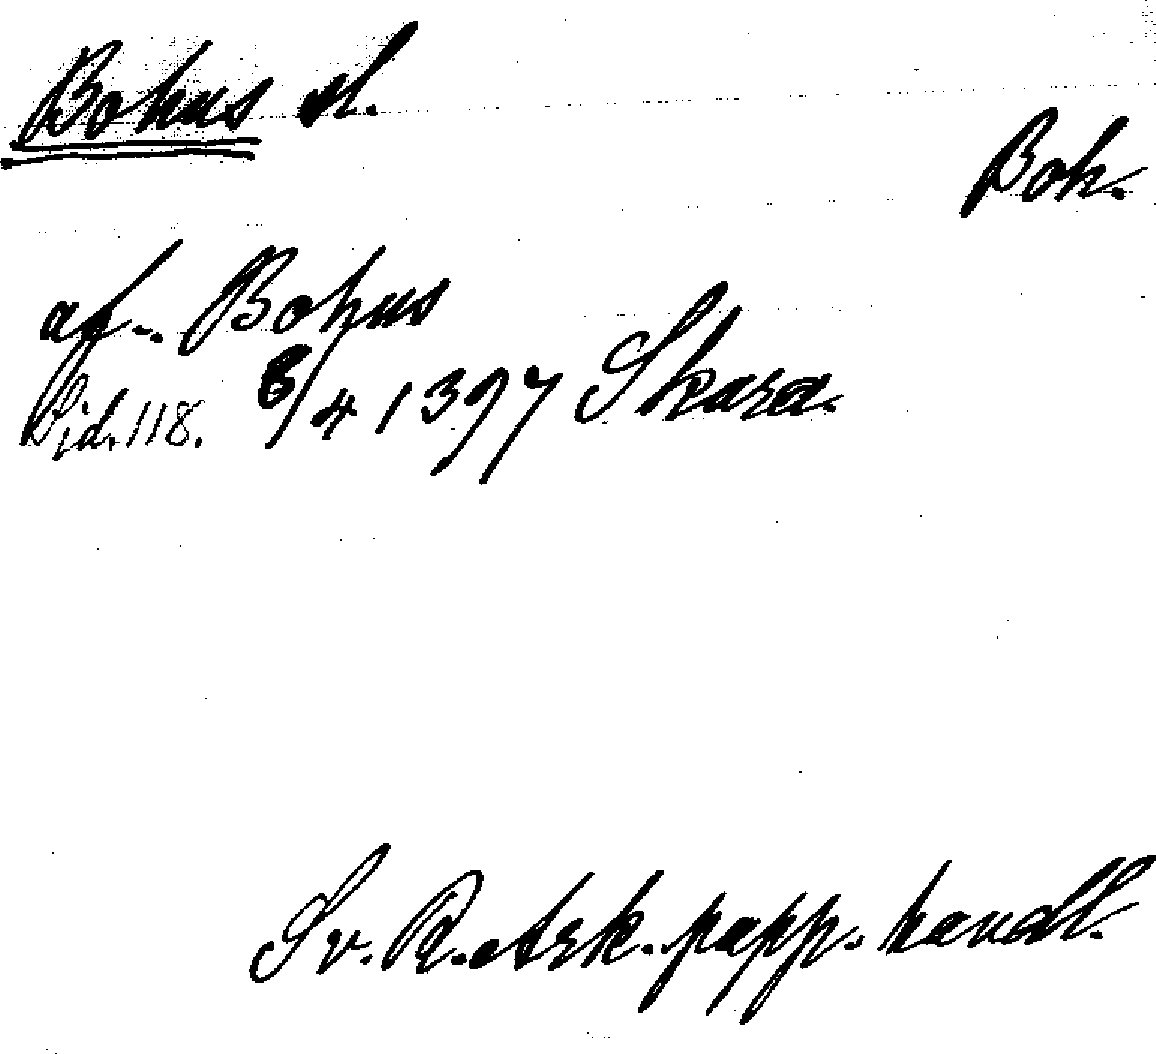 Bohus sl.
Boh.
af.. Bohus
Sid. 118. 8/4 1397 Skara.
Sv. R. Ark. papp. handl.